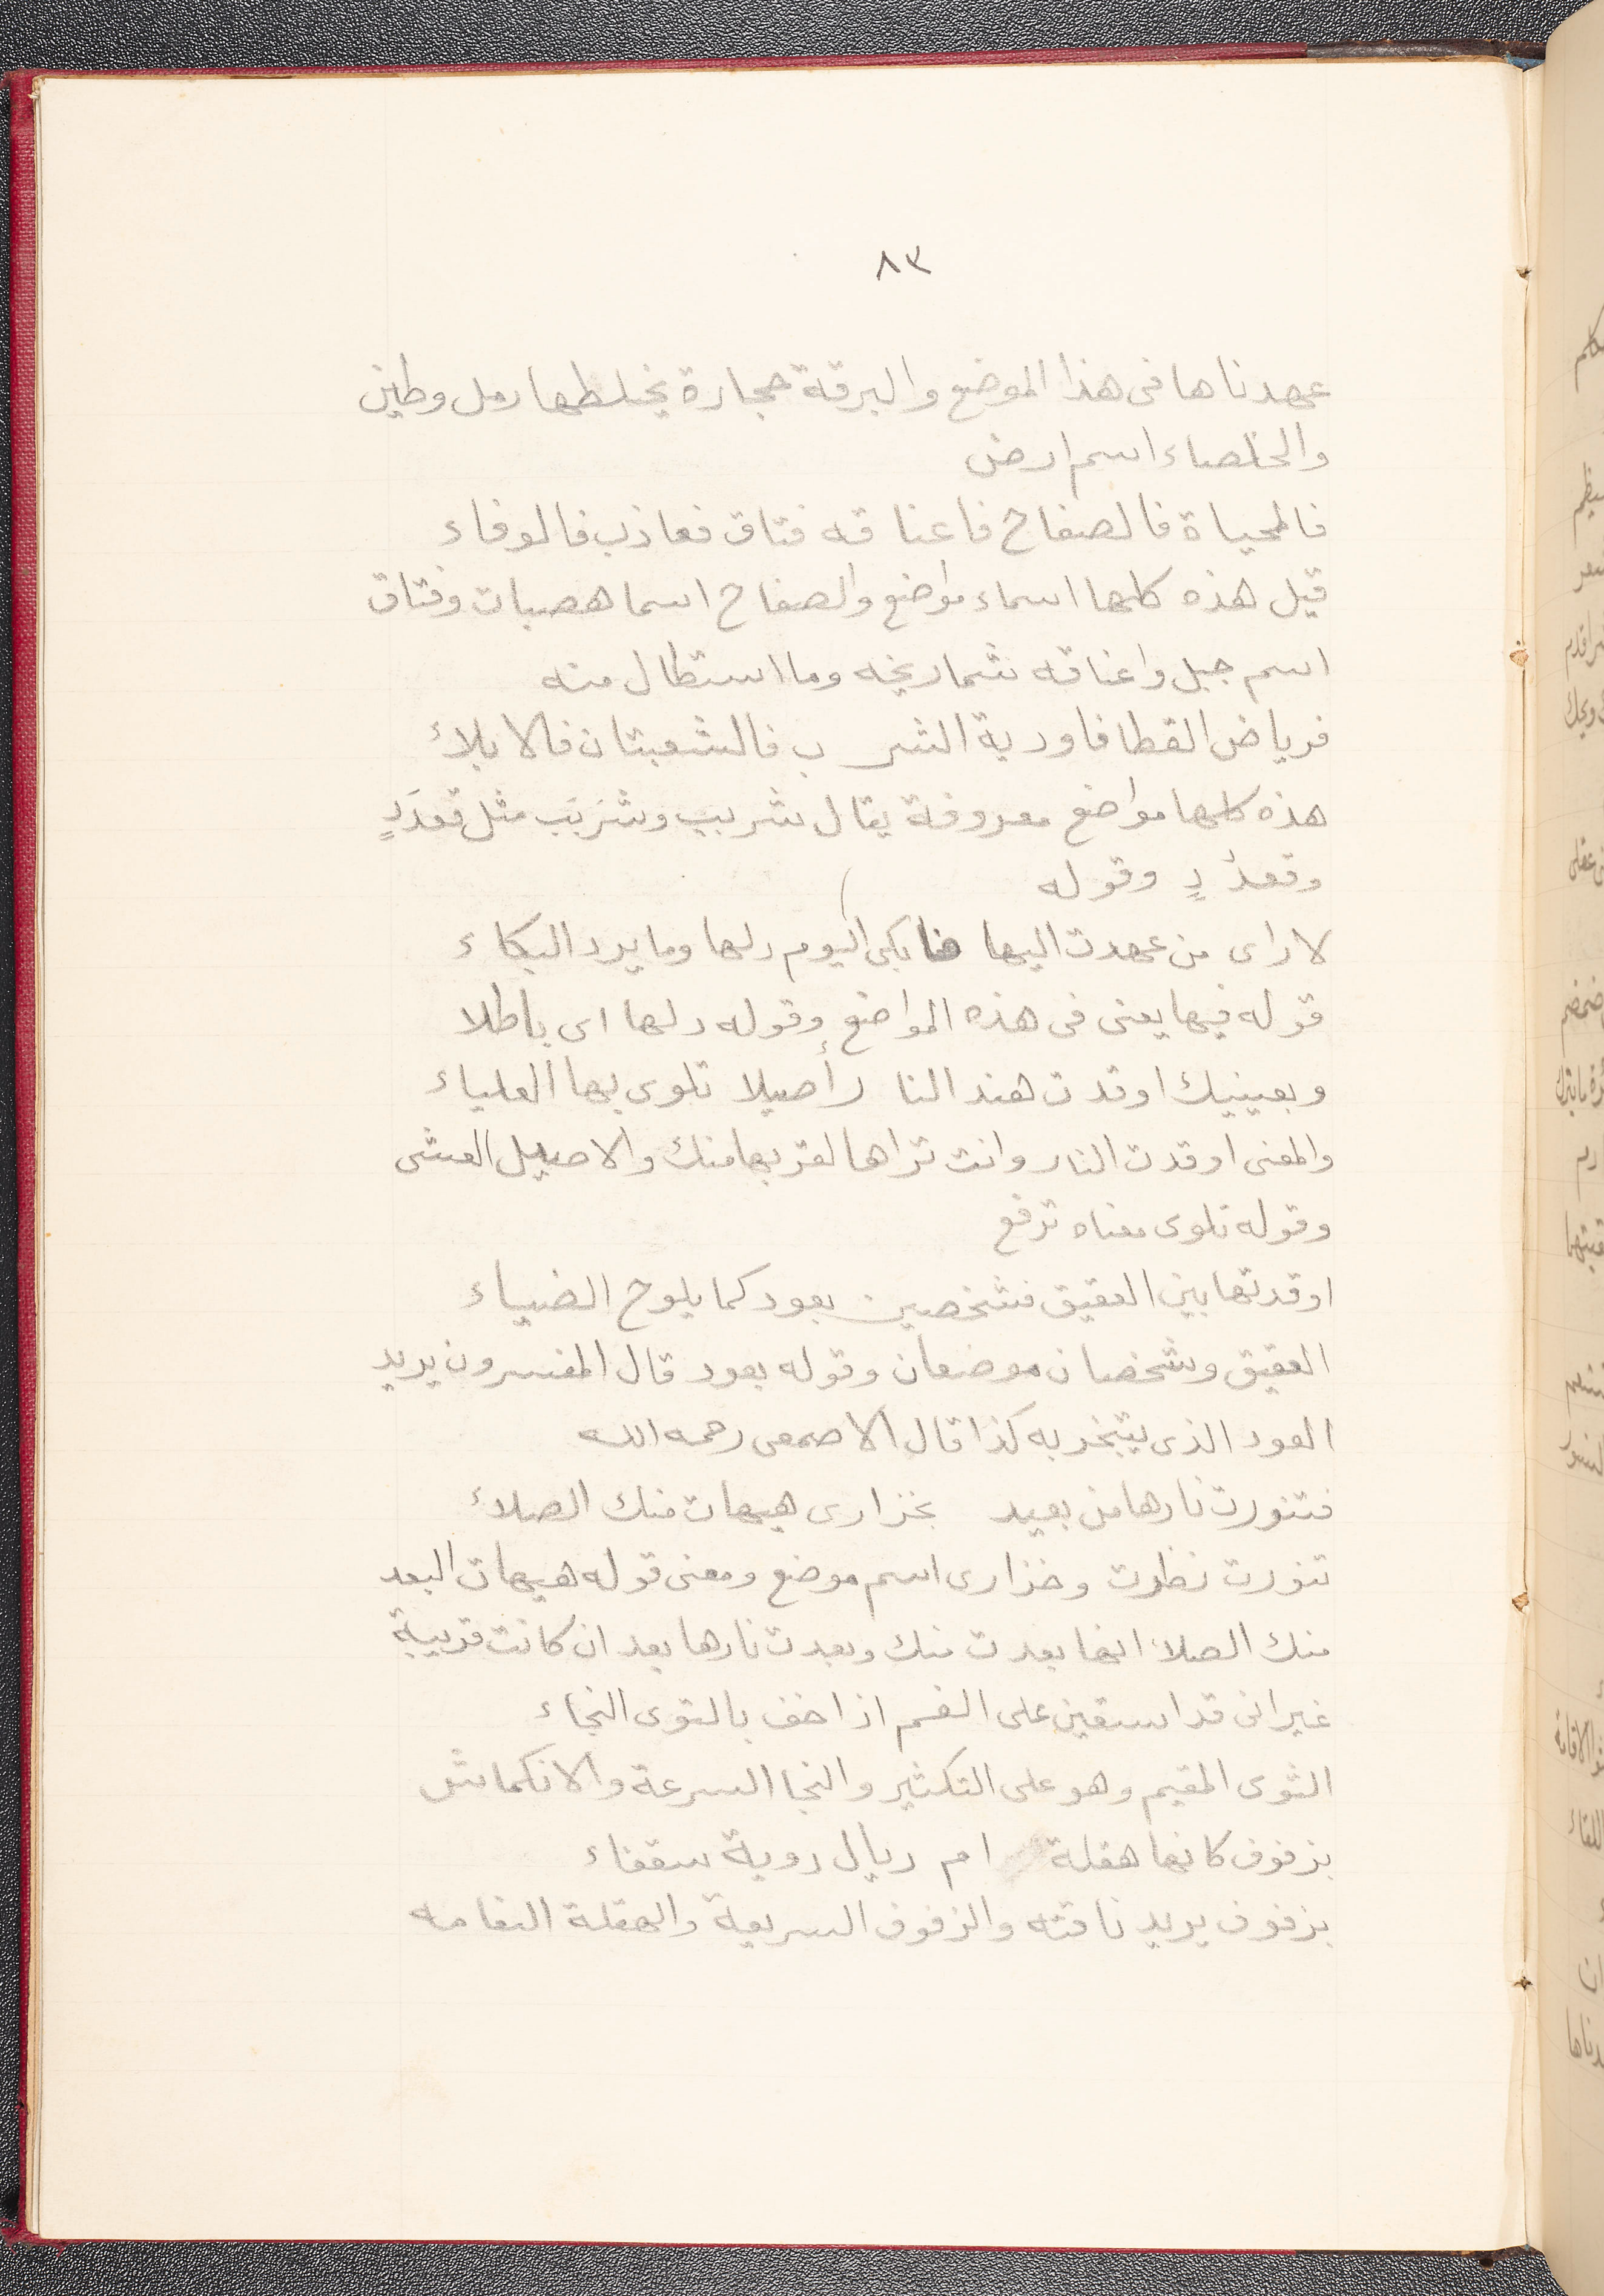 ٨٣
عهدناها فى هذا الموضع والبرقة حجارة يخلطها رمل وطين
والخلصاء اسم ارض
فالمحياة فالصفاح فاعناقه فتاق فعاذب فالوفاء
قيل هذه كلها اسماء مواضع والصفاح اسما هضبات وفتاق
اسم جبل واعناقه شماريخه وما استطال منه
فرياض القطا فاودية الشر ب فالشعبتان فالابلاء
هذه كلها مواضع معروفة يقال شربب وشَربَب مثل قعدَدٍ
وقعدُدٍ وقوله
لا ارى من عهدت اليها فابكى اليوم دلها وما يرد البكاء
قوله فيها يعنى فى هذه المواضع وقوله دلها اى باطلا
وبعينيك اوقدت هند النا رأصيلا تلوى بها العلياء
والمعنى اوقدت النار وانت تراها لقربها منك والاصيل العشى
وقوله تلوى معناه ترفع
اوقدتها بين العقيق فشخصين بعود كما يلوح الضياء
العقيق وشخصان موضعان وقوله بعود قال المفسرون يريد
العود الذى يتبخر به كذا قال الاصمعى رحمه الله
فتنورت نارها من بعيد بخزارى هيهات منك الصلاء
تنورت نظرت وخزارى اسم موضع ومعنى قوله هيهات البعد
منك الصلا انها بعدت منك وبعدت نارها بعد ان كانت قريبة
غير انى قد استعين على الهم اذا خف بالثوى النجاء
الثوى المقيم وهو على التكثير والنجا السرعة والانكماش
بزفوف كانها هقلة ام ريال روية سقفاء
بزفوف يريد ناقته والزفوف السريعة والهقلة النعامه